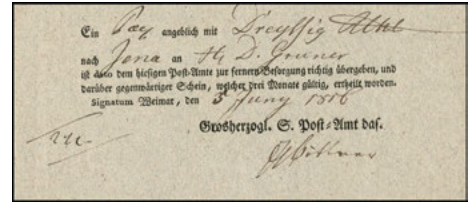 Ein Pay angeblich mit Dreyssig Rthl
nach Jena an H. D. Gruner
ist dato dem hiesigen Post-Amte zur fernern Besorgung richtig übergeben, und
darüber gegenwärtiger Schein, welcher drei Monate gültig, ertheilt worden.
Signatum Weimar, den 5 Juny 1816
Grosherzogl. S. Post-Amt das.